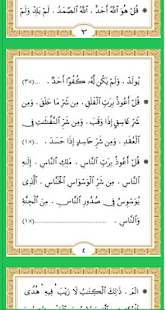 * قُلْ هُوَ ٱللَّهُ أَحَدٌ . ٱللَّهُ ٱلصَّمَدُ . لَمْ يَلِدْ وَلَمْ
٣
يُولَدْ . وَلَمْ يَكُن لَّهُ كُفُوًا أَحَدٌ . .....(٣×)
* قُلْ أَعُوذُ بِرَبِّ ٱلْفَلَقِ . مِن شَرِّ مَا خَلَقَ . وَمِن
شَرِّ غَاسِقٍ إِذَا وَقَبَ . وَمِن شَرِّ ٱلنَّفَّٰثَٰتِ فِي
ٱلْعُقَدِ . وَمِن شَرِّ حَاسِدٍ إِذَا حَسَدَ . .....(١×)
* قُلْ أَعُوذُ بِرَبِّ ٱلنَّاسِ . مَلِكِ ٱلنَّاسِ . إِلَٰهِ
ٱلنَّاسِ . مِن شَرِّ ٱلْوَسْوَاسِ ٱلْخَنَّاسِ . ٱلَّذِي
يُوَسْوِسُ فِي صُدُورِ ٱلنَّاسِ . مِنَ ٱلْجِنَّةِ
وَٱلنَّاسِ . .....(١×)
٤
* الٓمٓ . ذَٰلِكَ ٱلْكِتَٰبُ لَا رَيْبَ ۛ فِيهِ ۛ هُدًى